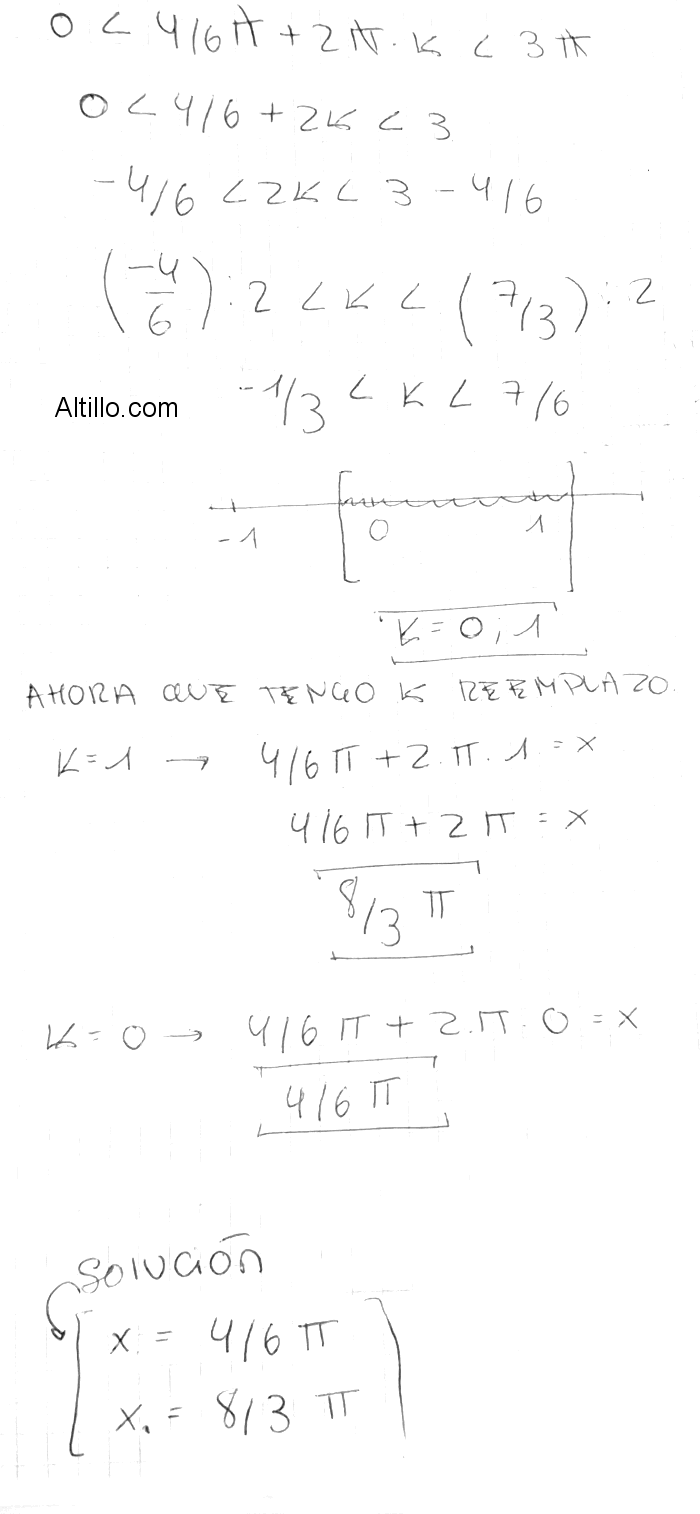 0 < 4/6 π + 2π · K < 3π
0 < 4/6 + 2K < 3
-4/6 < 2K < 3 - 4/6
(-4/6) : 2 < K < (7/3) : 2
-1/3 < K < 7/6
Altillo.com
-1 0 1
K = 0 ; 1
AHORA QUE TENGO K REEMPLAZO.
K = 1 → 4/6 π + 2 . π . 1 = x
4/6 π + 2 π = x
8/3 π
K = 0 → 4/6 π + 2 . π . 0 = x
4/6 π
Solución
x = 4/6 π
x. = 8/3 π